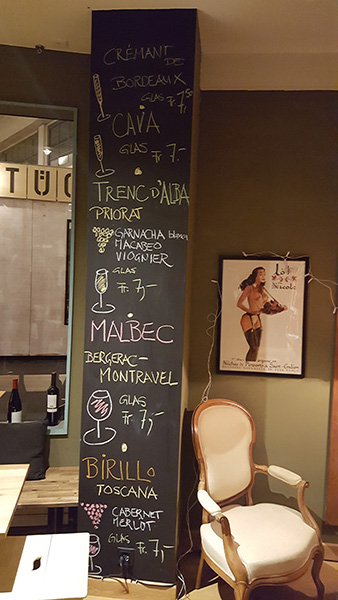 CRÉMANT DE
BORDEAUX
GLAS Fr. 7.50
CAVA
GLAS
Fr. 7.-
TRENC D'ALBA
PRIORAT
GARNACHA blanca
MACABEO
VIOGNIER
GLAS
Fr. 7,-
MALBEC
BERGERAC-
MONTRAVEL
GLAS
Fr. 7,-
BIRILLO
TOSCANA
CABERNET
MERLOT
GLAS Fr. 7,-
TÜC
Nicole